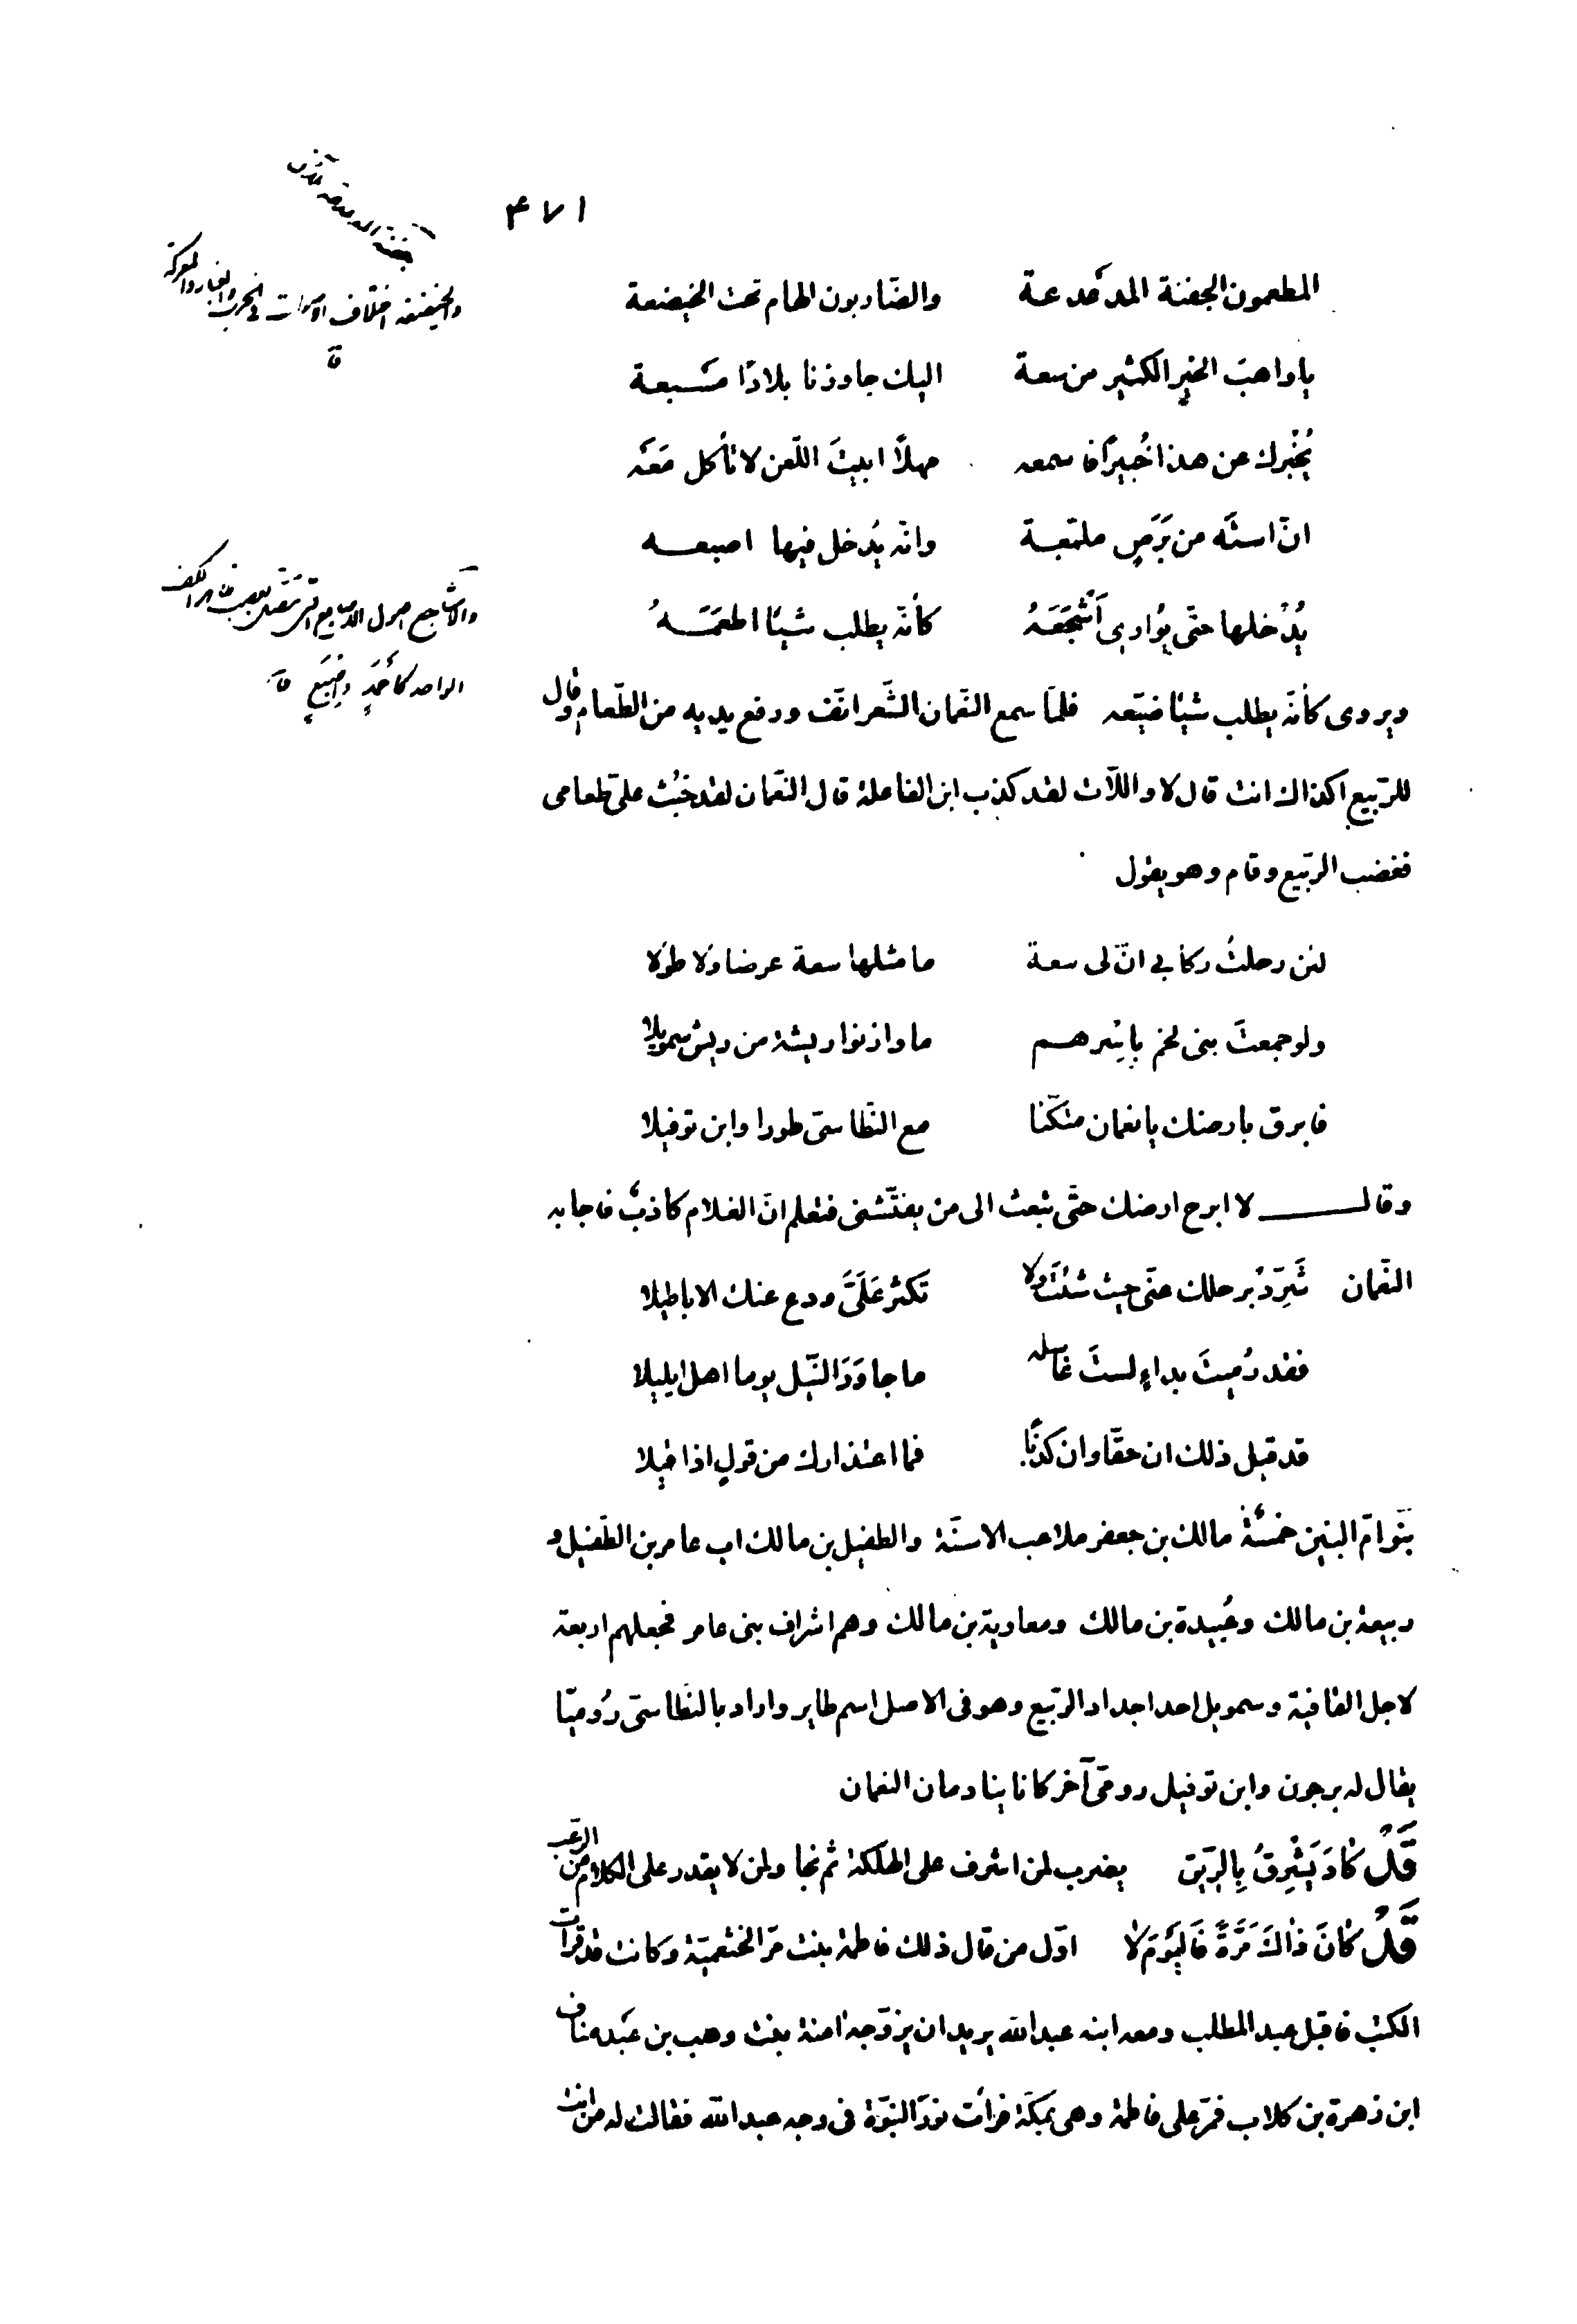 ۴۷۱
المطعمون الجفنة المدعدعة والضّاربون الهام تحت الخيضعة
يا واهبَ الخير الكثير من سعة اليك جاوزنا بلادًا مسبعة
يُخْبرك عن هذا خُبيرًا فاسمعه مهلًا ابيتَ اللّعن لا تأكل مَعَه
انّ استَه من بَرَصٍ ملمّعة وانّه يُدخل فيها اصبعه
يُدْخلها حتّى يُوارى اَشْجَعَهُ كأنّه يطلب شيئا اطعَمَهُ
ويروى كأنّه يطلب شيئا ضيّعه فلمّا سمع النعّمان الشّعر انف ورفع يديه من الطّعام وقال
للرّبيع اكذاك انت قال لا واللّات لقد كذب ابن الفاعلة قال النعّمان لقد خبُث علىّ طعامى
فغضب الرّبيع وقام وهو يقول
لئن رحلتُ ركابي انّ لى سعة ما مثلها سعة عرضا ولا طولا
ولو جمعتَ بنى لخم بأسِرهم ما وازنوا ريشة من ريش سمويلا
فابرق بارضك يا نعمان متكئا مع النّطاسىّ طورا وابن توفيلا
وقال لا ابرح ارضك حتّى تبعث الى من يفتّشنى فتعلم انّ الغلام كاذبٌ فاجابه
النعّمان شَرِّدْ برحلك عنّى حيث شئتَ ولا تكثر عَلَىَّ ودع عنك الاباطيلا
فقد رُميتَ بداءٍ لستَ غاسله ما جاوَرَ النّيل يوما اهل ايليلا
قد قيل ذلك ان حقّا وان كذبًا فما اعتذارك من قولٍ اذا قيلا
بَنو امّ البنين خمسَةٌ مالك بن جعفر ملاعب الاسنّة والطفيل بن مالك اب عامر بن الطّفيل و
ربيعة بن مالك وعُبيدة بن مالك ومعاوية بن مالك وهم اشراف بنى عامر فجعلهم اربعة
لاجل القافية وسمويل احد اجداد الرّبيع وهو فى الاصل اسم طاير واراد بالنّطاسىّ رُوميّا
يقال له برجون وابن توفيل رومىّ آخر كانا ينادمان النعمان
قَدْ كٰادَ يَشْرِقُ بِالرّيق يضرب لمن اشرف على الهلكة ثم نجا ولمن لا يقدر على الكلام من الرّعب
قَدْ كٰانَ ذٰاكَ مَرَّةً فَاليَوْمَ لٰا اوّل من قال ذلك فاطمة بنت مرّ الخثعميّة وكانت قد قرأت
الكتب فاقبل عبد المطلب ومعه ابنه عبد الله يريد ان يزوّجه امنة بنت وهب بن عَبد مناف
ابن زهرة بن كلاب فمرّ على فاطمة وهى بمكّة فرأت نورَ النبوّة فى وجه عبد اللّه فقالت له من انت
والخيضعة اختلاف الاصوات فى الحرب والغبار والمعركة
قآ
والاشاجع اصول الاصابع التى تتّصل بعصب ظاهر الكف
الواحد كأحمَدٍ واِصْبَعٍ قآ